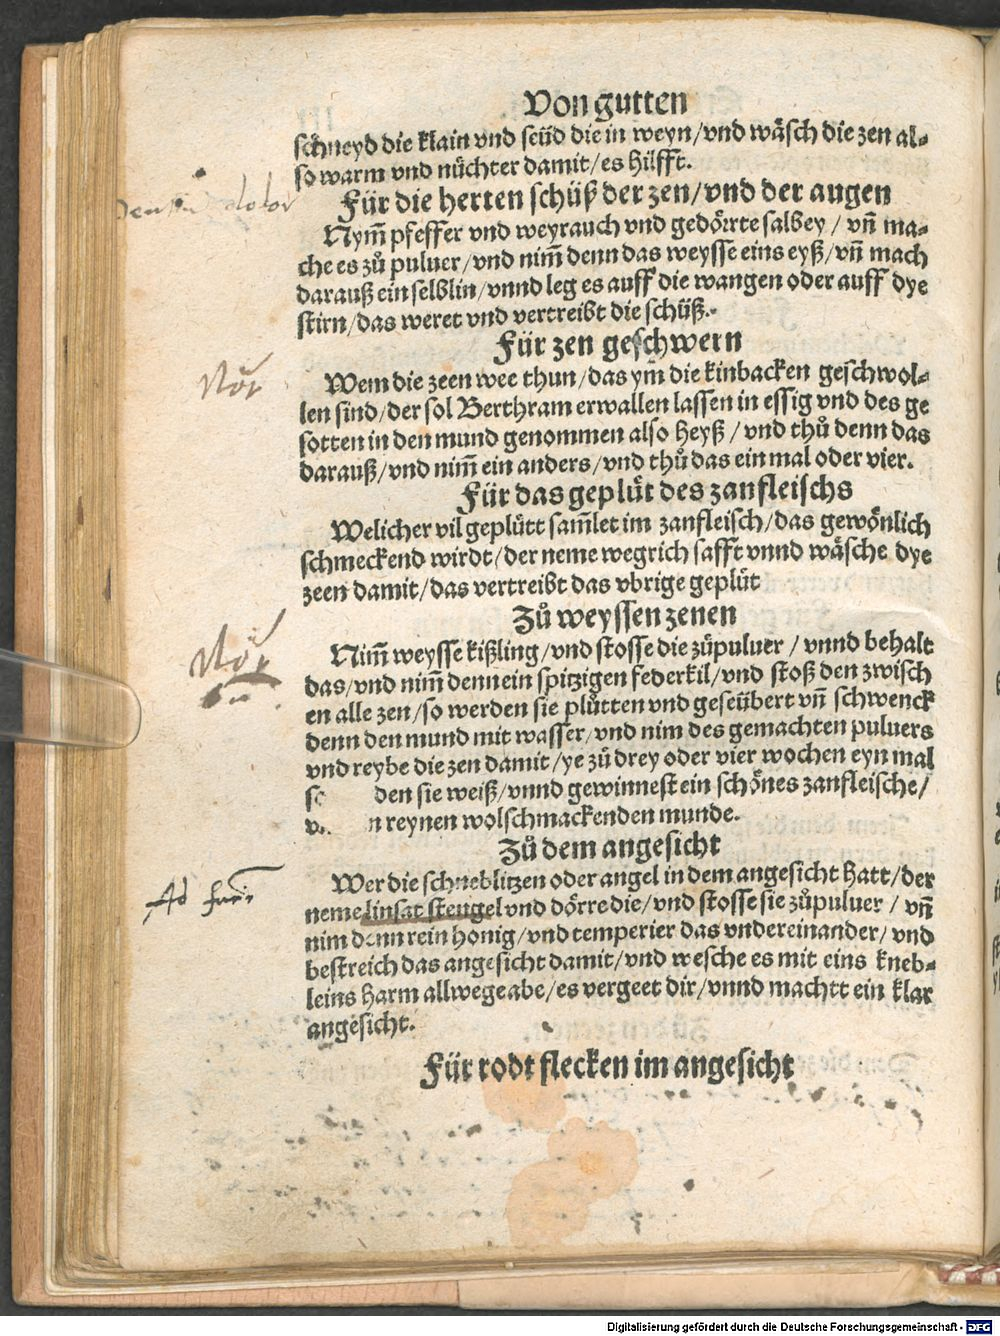 Von gutten
schneyd die klain vnd seüd die in weyn/vnd wäsch die zen al⸗
so warm vnd nüchter damit/es hilfft.
Für die herten schüß der zen/vnd der augen
dolor
Nym̃ pfeffer vnd weyrauch vnd gedörrte salbey / vñ ma⸗
che es zů puluer/vnd nim̃ denn das weysse eins eyß/vñ mach
darauß ein selblin/vnnd leg es auff die wangen oder auff dye
stirn/das weret vnd vertreibt die schüß.
Für zen geschwern
Wem die zeen wee thun/das ym̃ die kinbacken geschwol⸗
len sind/der sol Berthram erwallen lassen in essig vnd des ge
sotten in den mund genommen also heyß / vnd thů denn das
darauß/vnd nim̃ ein anders/vnd thů das ein mal oder vier.
Für das geplüt des zanfleischs
Welicher vil geplütt sam̃let im zanfleisch/das gewönlich
schmeckend wirdt/der neme wegrich safft vnnd wäsche dye
zeen damit/das vertreibt das vbrige geplüt
Zů weyssen zenen
Nim̃ weysse kißling/vnd stosse die zůpuluer / vnnd behalt
das/vnd nim̃ denn ein spitzigen federkil/vnd stoß den zwisch
en alle zen/so werden sie plütten vnd geseübert vñ schwenck
denn den mund mit wasser/vnd nim des gemachten puluers
vnd reybe die zen damit/ye zů drey oder vier wochen eyn mal
den sie weiß/vnnd gewinnest ein schönes zanfleische/
n reynen wolschmackenden munde.
Zů dem angesicht
Wer die schneblitzen oder angel in dem angesicht hatt/der
neme linsat stengel vnd dörre die/vnd stosse sie zůpuluer / vñ
nim denn rein honig/vnd temperier das vndereinander/ vnd
bestreich das angesicht damit/vnd wesche es mit eins kneb⸗
leins harm allwege abe/es vergeet dir/vnnd machtt ein klar
angesicht.
Für rodt flecken im angesicht
Digitalisierung gefördert durch die Deutsche Forschungsgemeinschaft - DFG